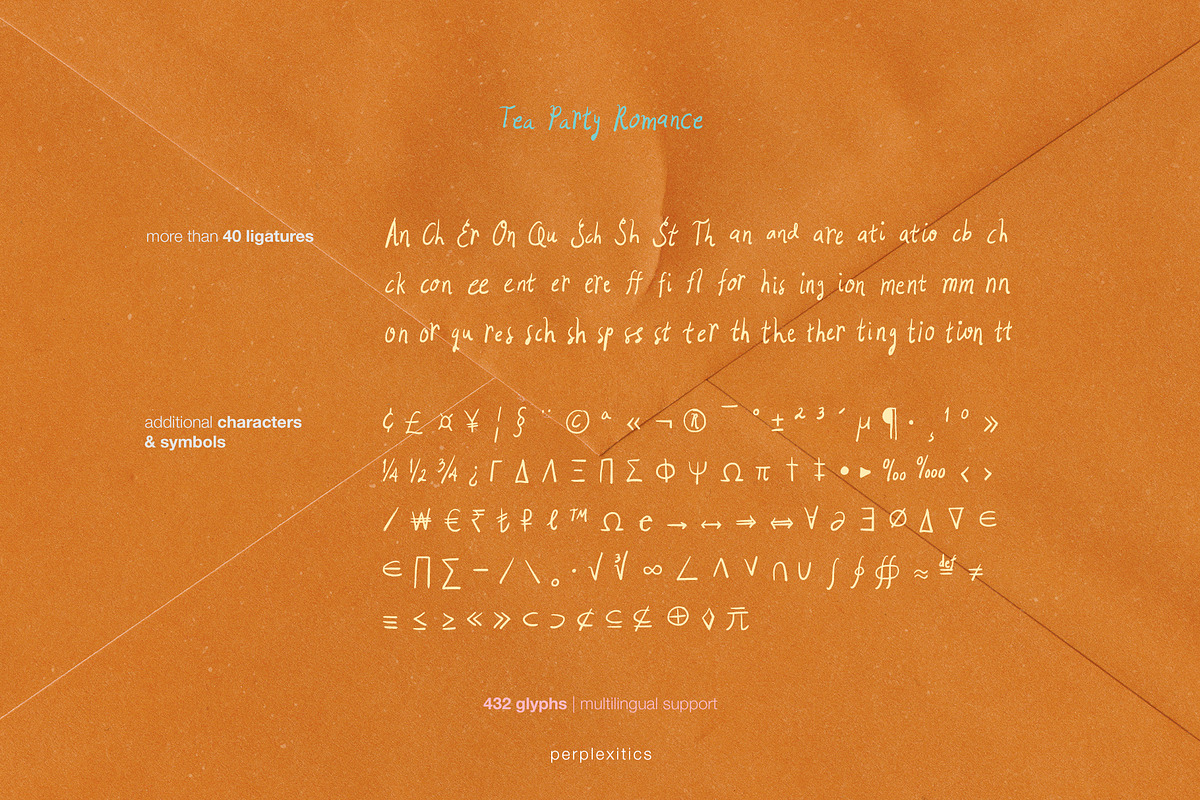 Tea Party Romance
more than 40 ligatures
An Ch Er On Qu Sch Sh St Th an and are ati atio cb ch
ck con ee ent er ere ff fi fl for his ing ion ment mm nn
on or qu res sch sh sp ss st ter th the ther ting tio tion tt
additional characters
& symbols
¢ £ ¤ ¥ ¦ § ¨ © ª « ¬ ® ¯ ° ± ² ³ ´ µ ¶ · ¸ ¹ º »
¼ ½ ¾ ¿ Γ Δ Λ Ξ Π Σ Φ Ψ Ω π † ‡ • ‣ ‰ ‱ ‹ ›
⁄ ₩ € ₹ ₺ ₽ ℓ ™ Ω ℮ → ↔ ⇒ ⇔ ∀ ∂ ∃ ∅ ∆ ∇ ∈
∊ ∏ ∑ − ∕ ∖ ∘ ∙ √ ∛ ∞ ∠ ∧ ∨ ∩ ∪ ∫ ∮ ∯ ≈ ≝ ≠
≡ ≤ ≥ ≪ ≫ ⊂ ⊃ ⊄ ⊆ ⊈ ⊕ ◊ ℼ
432 glyphs | multilingual support
perplexitics